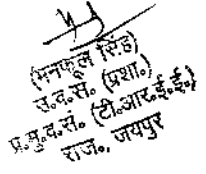 (मनफूल सिंह)
स.व.सं. (प्रशा.)
प्र.मु.व.सं. (टी.आर.ई.ई.)
राज., जयपुर